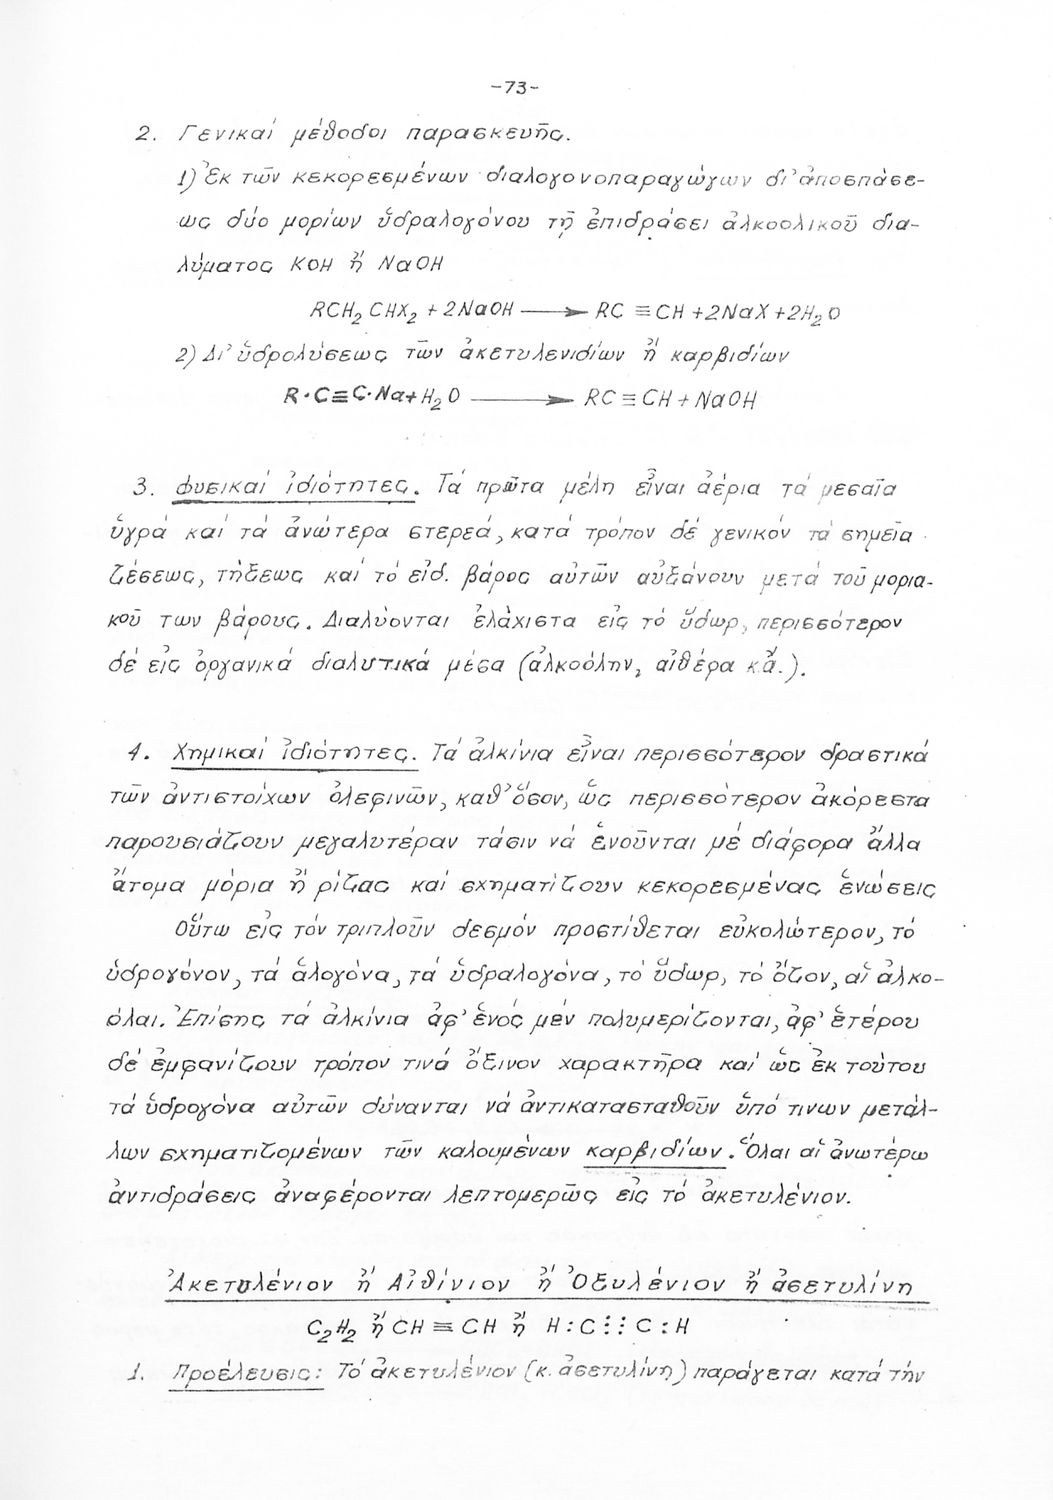 -73-
2. Γενικαί μέθοδοι παρασκευῆς.
1) Ἐκ τῶν κεκορεσμένων διαλογονοπαραγώγων δι' ἀποσπάσε-
ως δύο μορίων ὑδραλογόνου τῇ ἐπιδράσει ἀλκοολικοῦ δια-
λύματος ΚΟΗ ἤ NaOH
RCH₂CHX₂ + 2NaOH ⟶ RC ≡ CH + 2NaX + 2H₂O
2) Δι' ὑδρολύσεως τῶν ἀκετυλενιδίων ἤ καρβιδίων
R·C≡C·Na + H₂O ⟶ RC ≡ CH + NaOH
3. Φυσικαί ἰδιότητες. Τά πρῶτα μέλη εἶναι ἀέρια τά μεσαῖα
ὑγρά καί τά ἀνώτερα στερεά, κατά τρόπον δέ γενικόν τά σημεῖα
ζέσεως, τήξεως καί τό εἰδ. βάρος αὐτῶν αὐξάνουν μετά τοῦ μορια-
κοῦ των βάρους. Διαλύονται ἐλάχιστα εἰς τό ὕδωρ, περισσότερον
δέ εἰς ὀργανικά διαλυτικά μέσα (ἀλκοόλην, αἰθέρα κ.ἄ.).
4. Χημικαί ἰδιότητες. Τά ἀλκίνια εἶναι περισσότερον δραστικά
τῶν ἀντιστοίχων ὀλεφινῶν, καθ' ὅσον, ὡς περισσότερον ἀκόρεστα
παρουσιάζουν μεγαλυτέραν τάσιν νά ἑνοῦνται μέ διάφορα ἄλλα
ἄτομα μόρια ἤ ρίζας καί σχηματίζουν κεκορεσμένας ἑνώσεις
Οὕτω εἰς τόν τριπλοῦν δεσμόν προστίθεται εὐκολώτερον, τό
ὑδρογόνον, τά ἁλογόνα, τά ὑδραλογόνα, τό ὕδωρ, τό ὄζον, αἱ ἀλκο-
όλαι. Ἐπίσης τά ἀλκίνια ἀφ' ἑνός μέν πολυμερίζονται, ἀφ' ἑτέρου
δέ ἐμφανίζουν τρόπον τινά ὄξινον χαρακτῆρα καί ὡς ἐκ τούτου
τά ὑδρογόνα αὐτῶν δύνανται νά ἀντικατασταθοῦν ὑπό τινων μετάλ-
λων σχηματιζομένων τῶν καλουμένων καρβιδίων. Ὅλαι αἱ ἀνωτέρω
ἀντιδράσεις ἀναφέρονται λεπτομερῶς εἰς τό ἀκετυλένιον.
Ἀκετυλένιον ἤ Αἰθίνιον ἤ Ὀξυλένιον ἤ ἀσετυλίνη
C₂H₂ ἤ CH ≡ CH ἤ H : C ⋮⋮ C : H
1. Προέλευσις: Τό ἀκετυλένιον (κ. ἀσετυλίνη) παράγεται κατά τήν